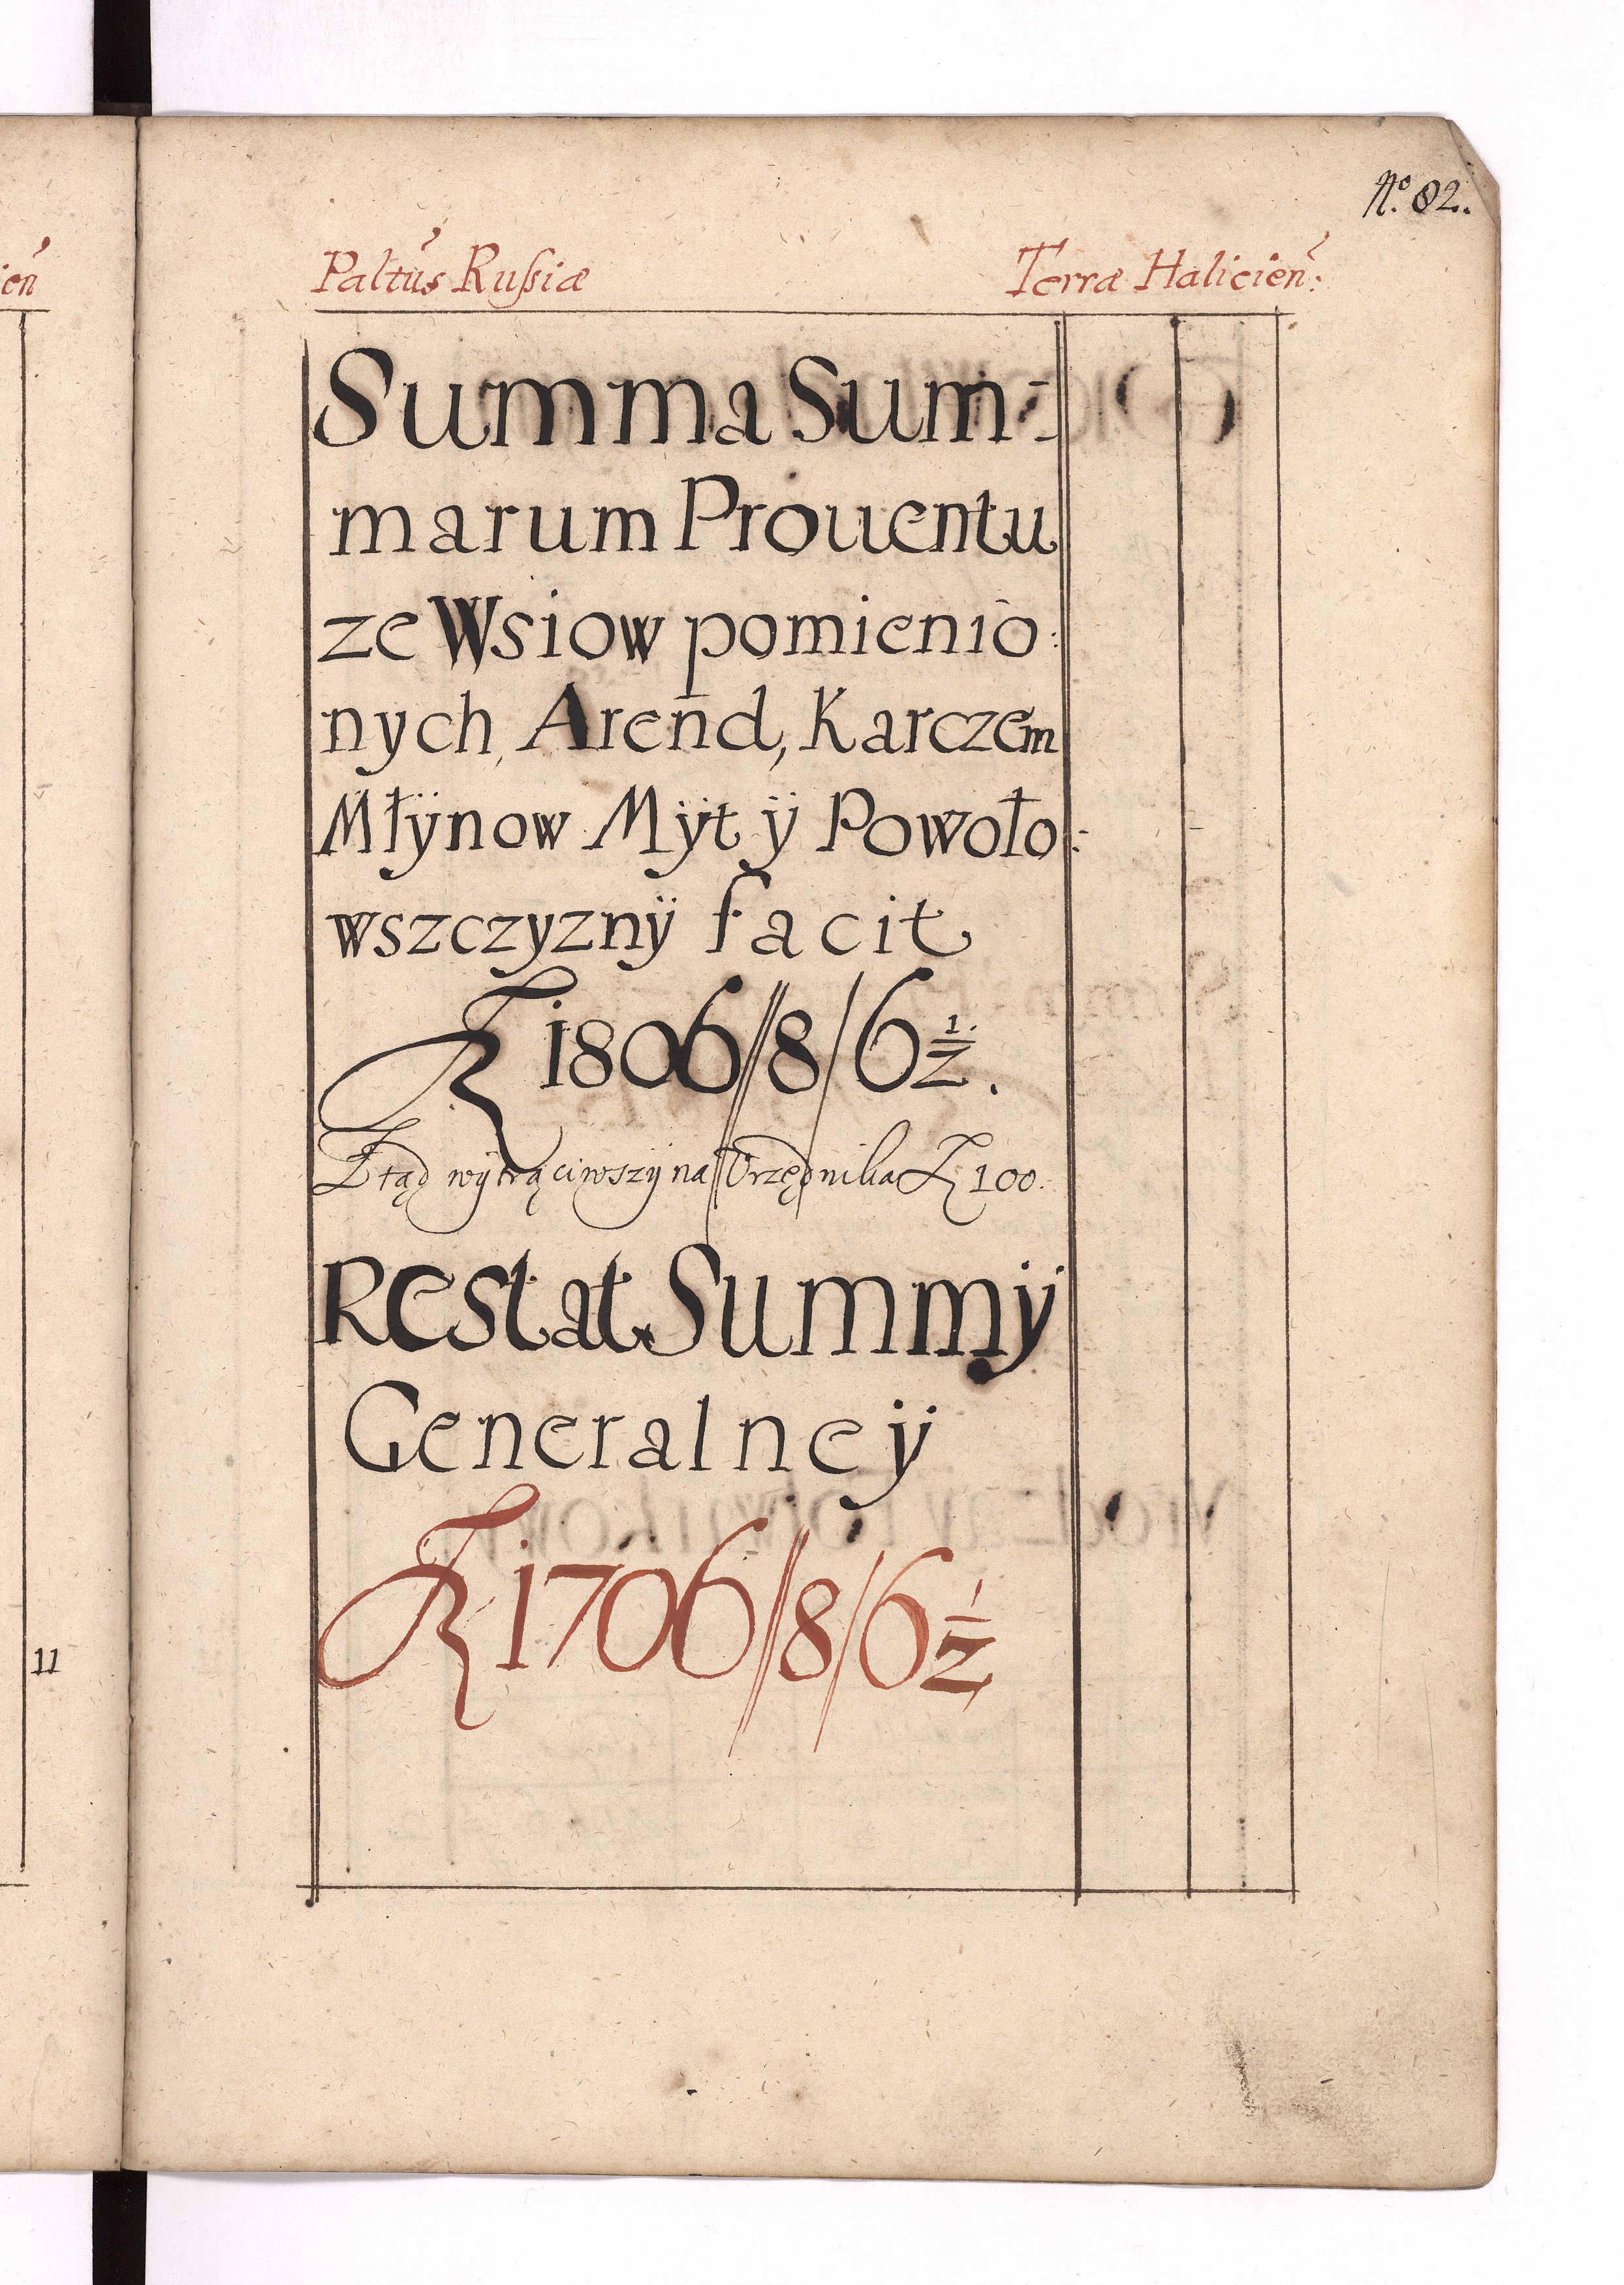 No. 82.
Paltus Russiæ Terræ Halicien:
Summa Sum-
marum Prouentu
ze Wsiow pomienio:
nych, Arend, Karczem
Młÿnow Mÿt ÿ Powoło:
wszczyznÿ facit
1806//8/6 1/2.
Ztąd wÿtrąciwszÿ na Urzędnika 100.
Restat Summÿ
Generalneÿ
1706//8/6 1/2
11